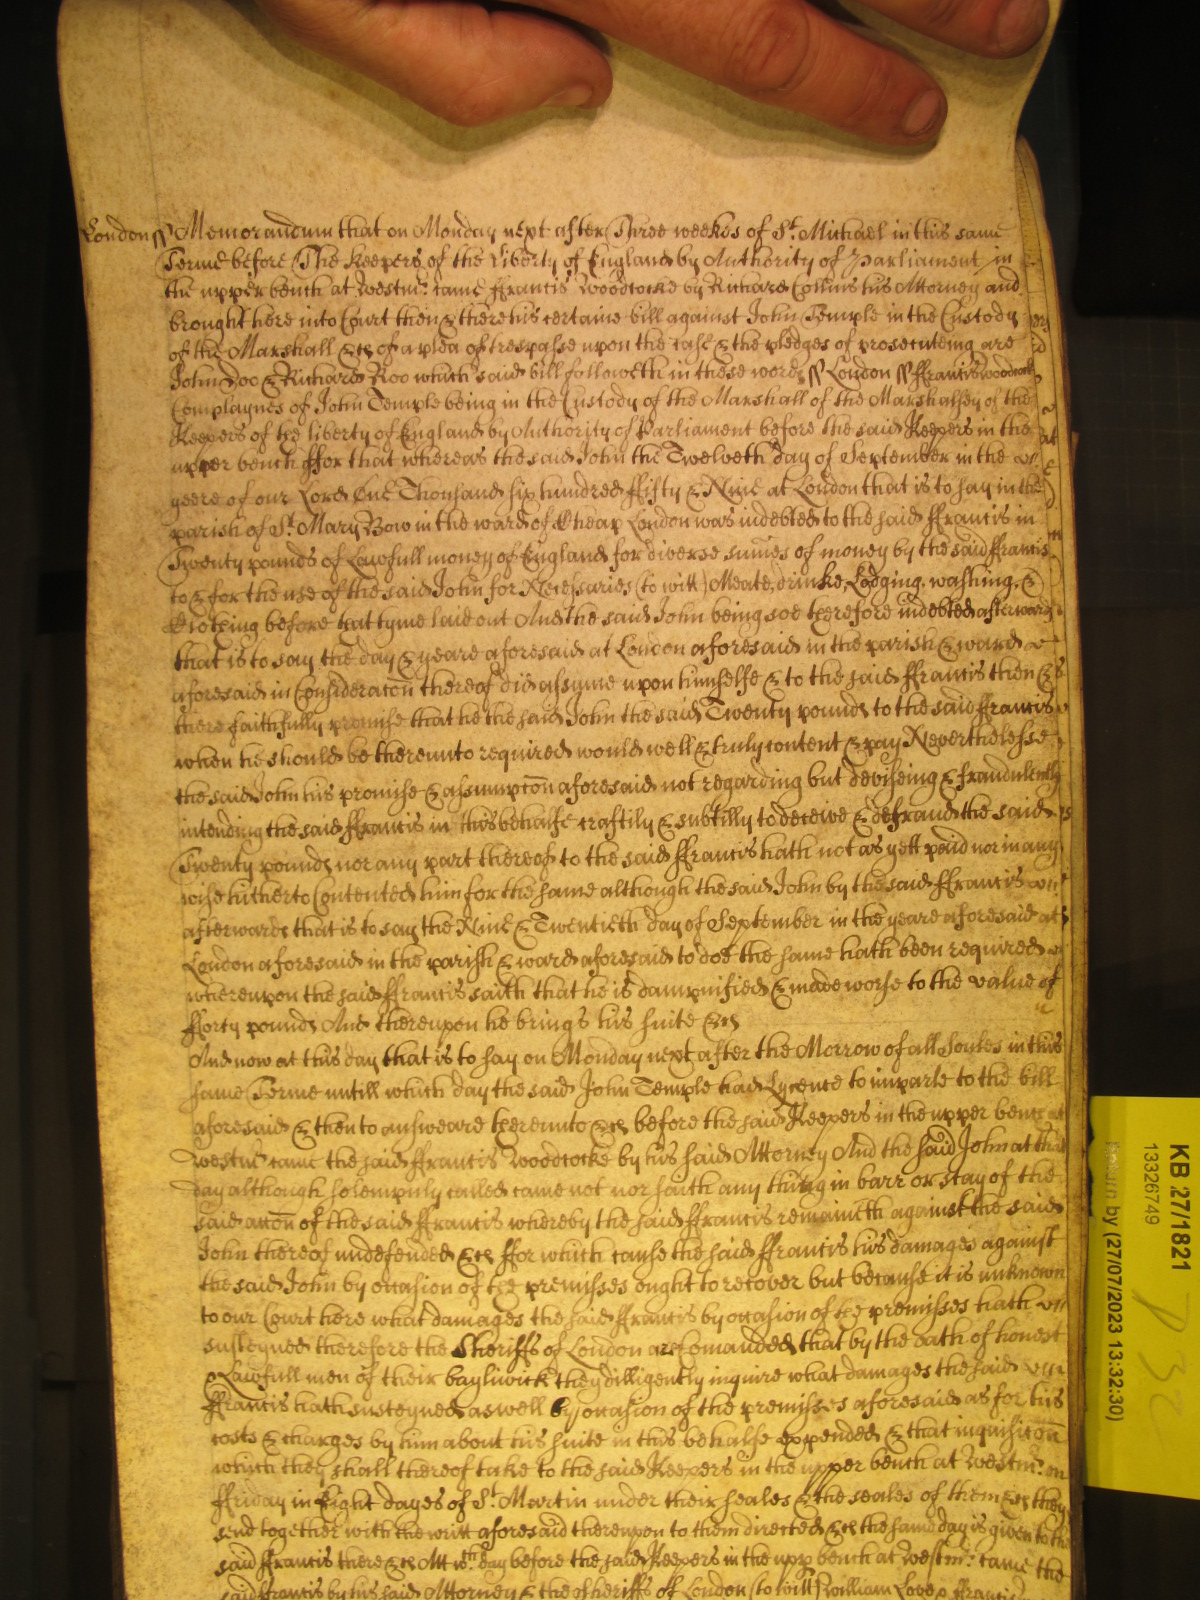 London ss Memorandum that on Monday next after Three weekes of St. Michael in this same
Terme before The Keepers of the Liberty of England by Authority of Parliament in
the upper bench at Westmr. came ffrancis Woodcocke by Richard Collins his Attorney and
brought here into Court then & there his certaine bill against John Temple in the Custody
of the Marshall &c of a plea of trespasse upon the case & the pledges of prosecuteing are
John Doo & Richard Roo which said bill followeth in these words ss London ss ffrancis Woodcock
Complaynes of John Temple being in the Custody of the Marshall of the Marshalsey of the
Keepers of the liberty of England by Authority of Parliament before the said Keepers in the
upper bench ffor that whereas the said John the Twelveth day of September in the
yeere of our Lord One Thousand six hundred ffifty & Nine at London that is to say in the
parish of St. Mary Bow in the ward of Cheap London was indebted to the said ffrancis in
Twenty pounds of Lawfull money of England for diverse summes of money by the said ffrancis
to & for the use of the said John for Necessaries (to witt) Meate, drinke, Lodging, washing, &
Clothing before that tyme laid out And the said John being soe therefore indebted afterwards
that is to say the day & yeare aforesaid at London aforesaid in the parish & ward
aforesaid in Consideracon thereof did assume upon himselfe & to the said ffrancis then &
there faithfully promise that he the said John the said Twenty pounds to the said ffrancis
when he should be thereunto required would well & truly content & pay Neverthelesse
the said John his promise & assumpcon aforesaid not regarding but deviseing & fraudulently
intending the said ffrancis in this behalfe craftily & subtilly to deceive & defraud the said
Twenty pounds nor any part thereof to the said ffrancis hath not as yett paid nor in any
wise hitherto Contented him for the same although the said John by the said ffrancis
afterwards that is to say the Nine & Twentieth day of September in the yeare aforesaid at
London aforesaid in the parish & ward aforesaid to doe the same hath been required
whereupon the said ffrancis saith that he is dampnified & made worse to the value of
fforty pounds And thereupon he brings his suite &c
And now at this day that is to say on Monday next after the Morrow of all Soules in this
same Terme untill which day the said John Temple had Lycence to imparle to the bill
aforesaid & then to answeare thereunto &c before the said Keepers in the upper bench at
Westmr. came the said ffrancis Woodcocke by his said Attorney And the said John at that
day although solempnly called came not nor saith any thing in barr or stay of the
said accon of the said ffrancis whereby the said ffrancis remaineth against the said
John thereof undefended &c ffor which cause the said ffrancis his damages against
the said John by occasion of the premisses ought to recover but because it is unknown
to our Court here what damages the said ffrancis by occasion of the premisses hath
susteyned therefore the Sheriffs of London are comanded that by the oath of honest
& Lawfull men of their bayliwick they dilligently inquire what damages the said
ffrancis hath susteyned aswell by occasion of the premisses aforesaid as for his
costs & charges by him about his suite in this behalfe expended & that inquisicon
which they shall thereof take to the said Keepers in the upper bench at Westmr. on
ffriday in Eight dayes of St. Martin under their seales & the seales of them &c they
send together with the writt aforesaid thereupon to them directed &c the same day is given to the
said ffrancis there &c Att wch. day before the said Keepers in the upp bench at Westmr. came the
said ffrancis by his said Attorney & the Sheriffs of London (to witt) William Love &
KB 27/1821
13326749
Return by (27/07/2023 13:32:30)
P 32